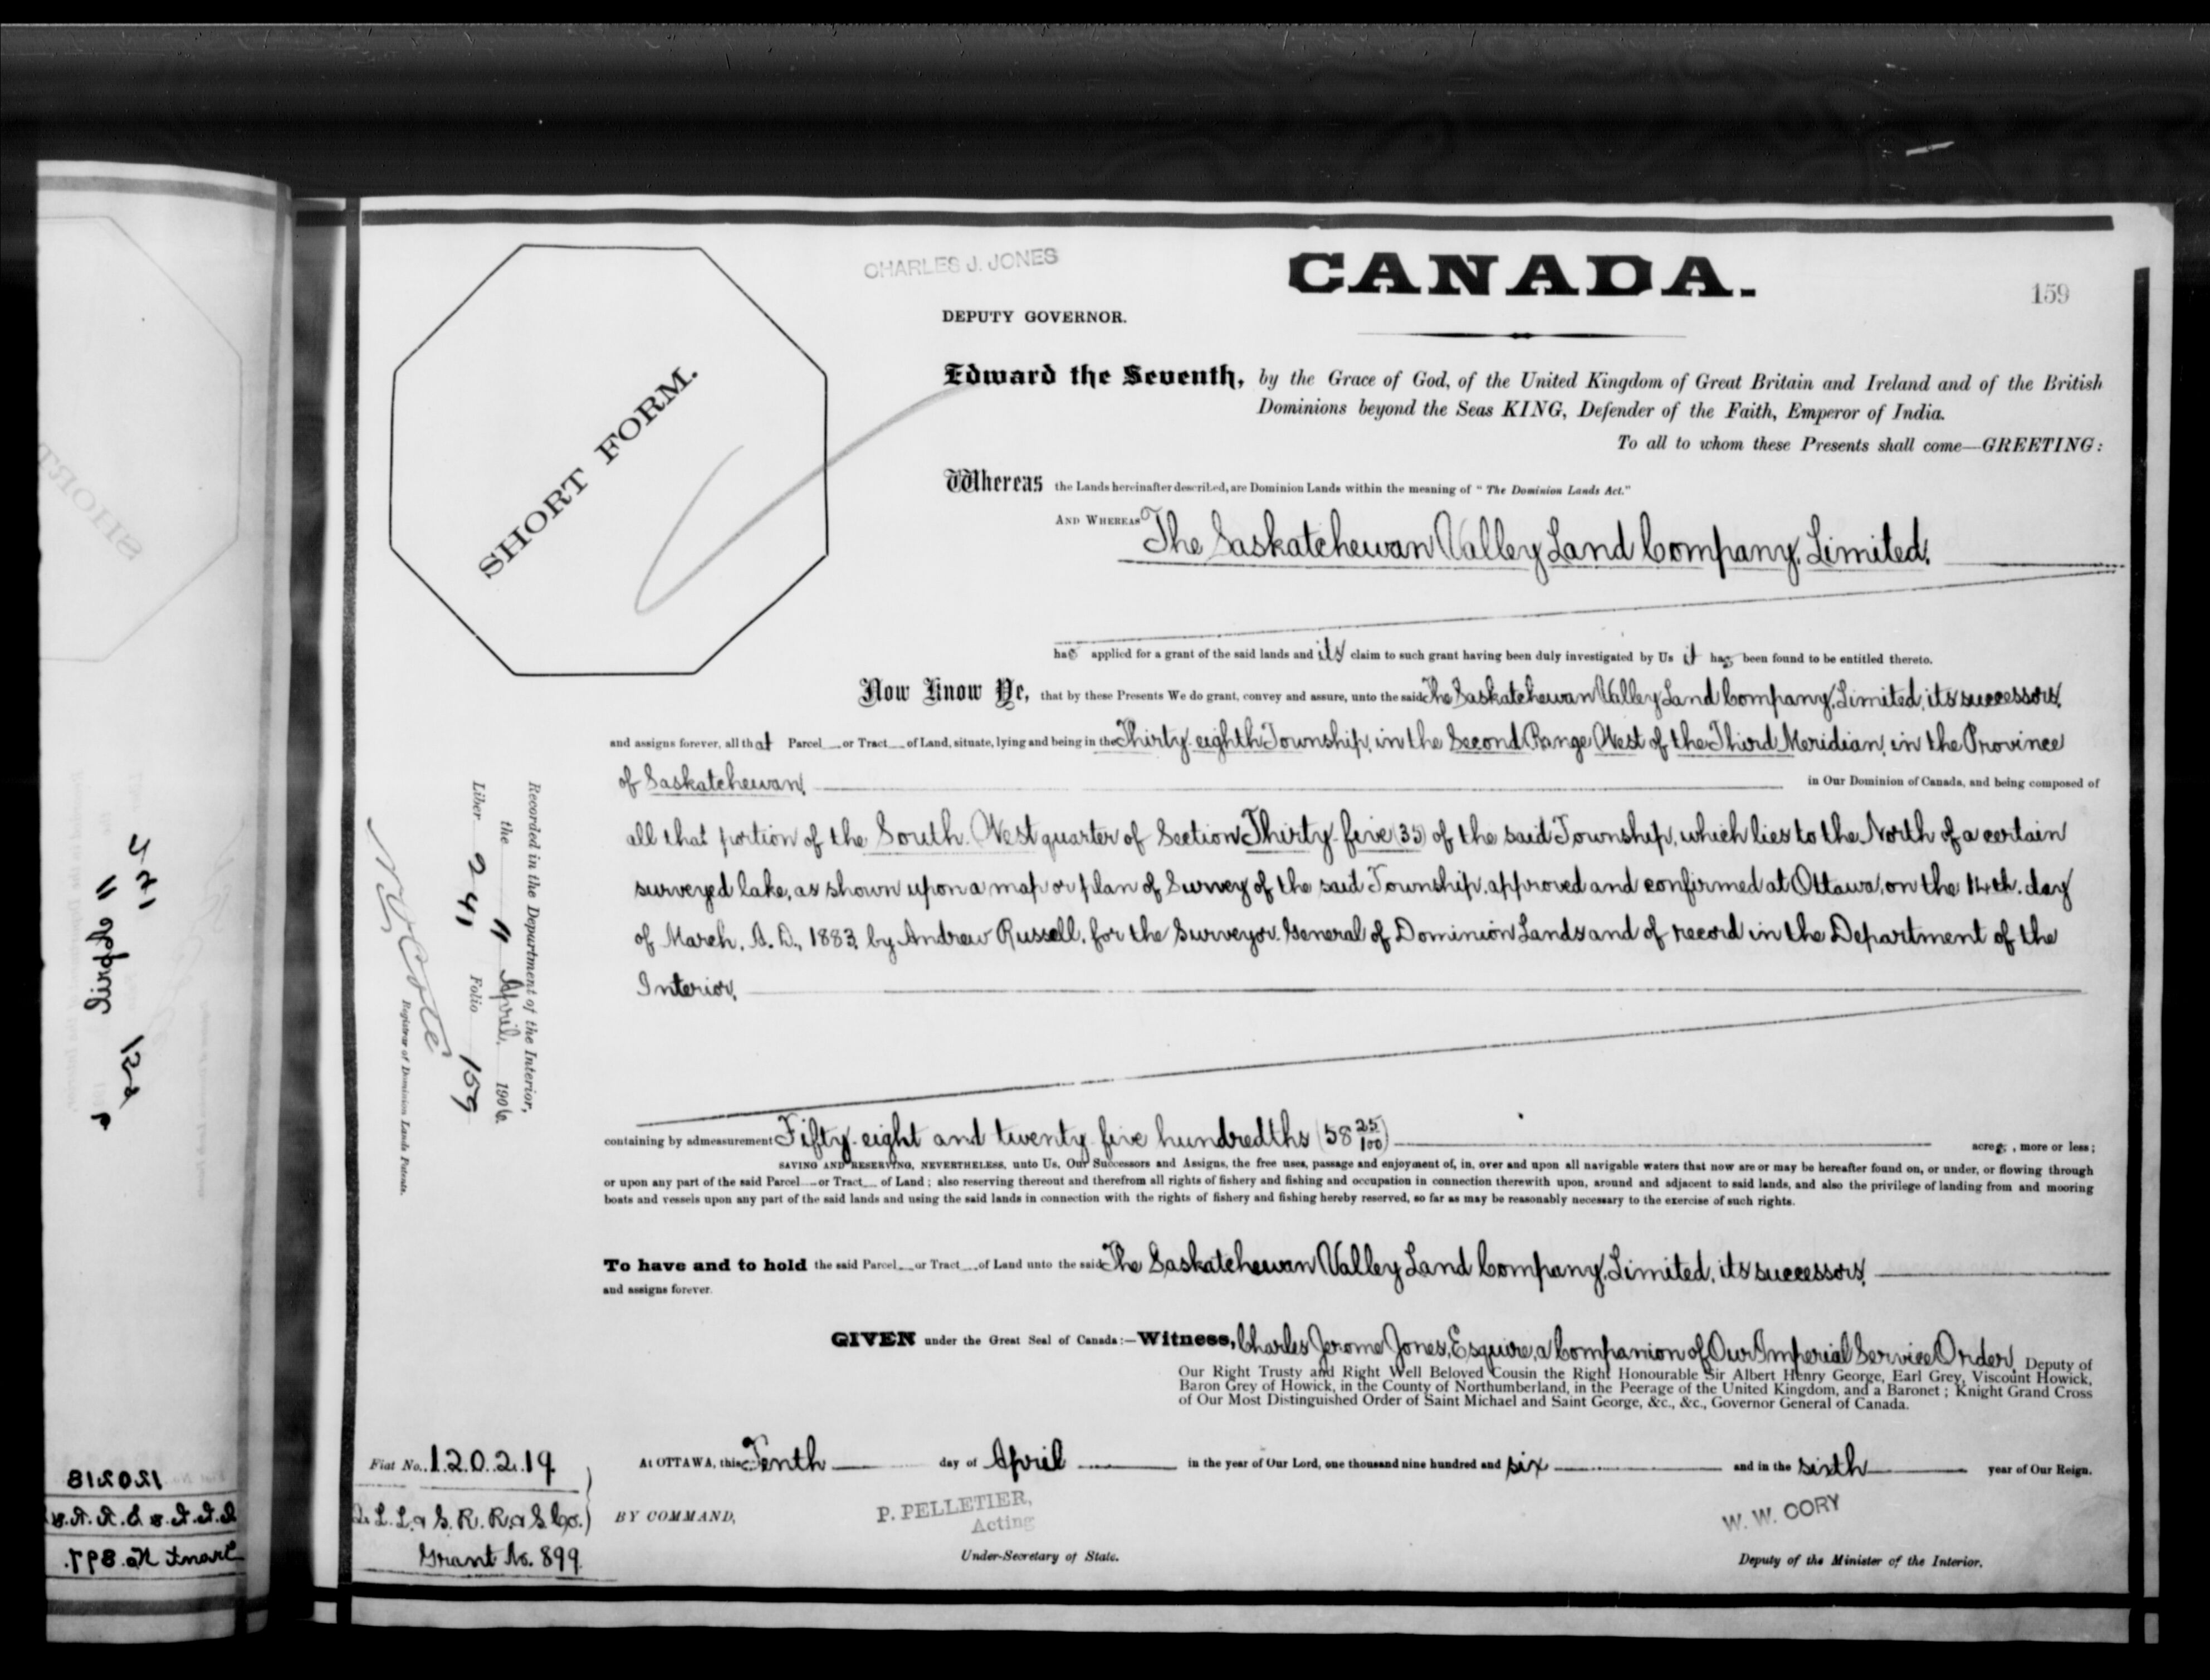 CHARLES J. JONES
CANADA.
159
DEPUTY GOVERNOR.
SHORT FORM.
Edward the Seventh, by the Grace of God, of the United Kingdom of Great Britain and Ireland and of the British
Dominions beyond the Seas KING, Defender of the Faith, Emperor of India.
To all to whom these Presents shall come—GREETING:
Whereas the Lands hereinafter described, are Dominion Lands within the meaning of "The Dominion Lands Act."
AND WHEREAS The Saskatchewan Valley Land Company, Limited,
has applied for a grant of the said lands and its claim to such grant having been duly investigated by Us it has been found to be entitled thereto.
Now Know Ye, that by these Presents We do grant, convey and assure, unto the said The Saskatchewan Valley Land Company, Limited, its successors,
and assigns forever, all that Parcel or Tract of Land, situate, lying and being in the Thirty-eighth Township, in the Second Range West of the Third Meridian, in the Province
of Saskatchewan, in Our Dominion of Canada, and being composed of
all that portion of the South-West quarter of Section Thirty-five (35) of the said Township, which lies to the North of a certain
surveyed lake, as shown upon a map or plan of Survey of the said Township, approved and confirmed at Ottawa, on the 14th. day
of March, A. D., 1883, by Andrew Russell, for the Surveyor General of Dominion Lands and of record in the Department of the
Interior,
containing by admeasurement Fifty-eight and twenty-five hundredths (58 25/100) acres, more or less;
SAVING AND RESERVING, NEVERTHELESS, unto Us, Our Successors and Assigns, the free uses, passage and enjoyment of, in, over and upon all navigable waters that now are or may be hereafter found on, or under, or flowing through
or upon any part of the said Parcel or Tract of Land; also reserving thereout and therefrom all rights of fishery and fishing and occupation in connection therewith upon, around and adjacent to said lands, and also the privilege of landing from and mooring
boats and vessels upon any part of the said lands and using the said lands in connection with the rights of fishery and fishing hereby reserved, so far as may be reasonably necessary to the exercise of such rights.
To have and to hold the said Parcel or Tract of Land unto the said The Saskatchewan Valley Land Company, Limited, its successors,
and assigns forever.
GIVEN under the Great Seal of Canada:—Witness, Charles Jerome Jones, Esquire, a Companion of Our Imperial Service Order, Deputy of
Our Right Trusty and Right Well Beloved Cousin the Right Honourable Sir Albert Henry George, Earl Grey, Viscount Howick,
Baron Grey of Howick, in the County of Northumberland, in the Peerage of the United Kingdom, and a Baronet; Knight Grand Cross
of Our Most Distinguished Order of Saint Michael and Saint George, &c., &c., Governor General of Canada.
At OTTAWA, this Tenth day of April in the year of Our Lord, one thousand nine hundred and six and in the sixth year of Our Reign.
BY COMMAND,
P. PELLETIER,
Acting
Under-Secretary of State.
W. W. CORY
Deputy of the Minister of the Interior.
Recorded in the Department of the Interior,
the 11 April, 1906.
Liber 241 Folio 159
N. O. Coté
Registrar of Dominion Lands Patents.
Fiat No. 120219
Q. L. L. & S. R. R. & S. Co.
Grant No. 899
120218
Grant No. 897.